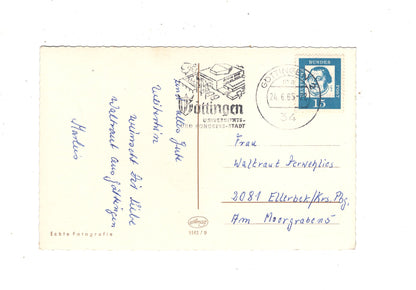 und alles Gute
Weiterhin
wünscht Dir liebe
Waltraut aus Göttingen
Echte Fotografie
Göttingen
UNIVERSITÄTS-
UND KONGRESS-STADT
GÖTTINGEN
24.6.63
34
DEUTSCHE BUNDESPOST
15
Frau
Waltraut
2081 Ellerbek/Krs. Pbg.
Am Moorgraben 5